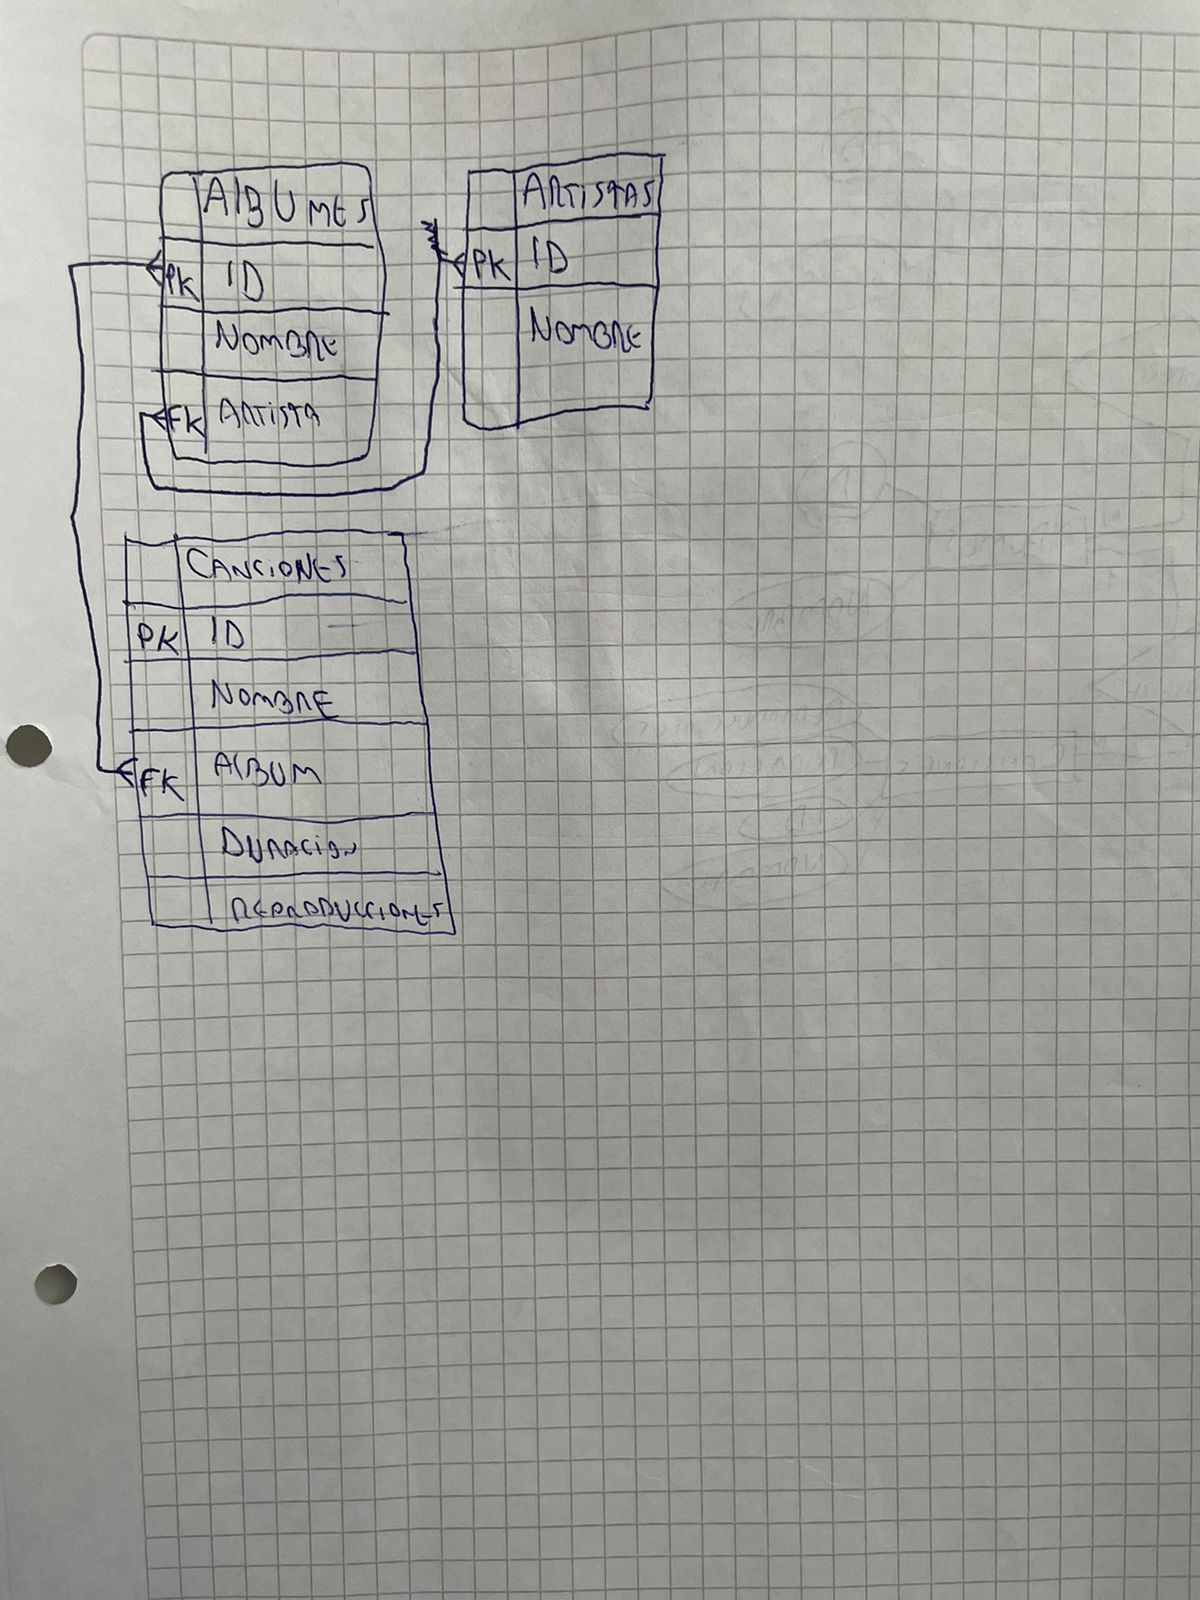 ALBUMES
PK ID
NOMBRE
FK ARTISTA
ARTISTAS
PK ID
NOMBRE
CANCIONES
PK ID
NOMBRE
FK ALBUM
DURACION
REPRODUCCIONES